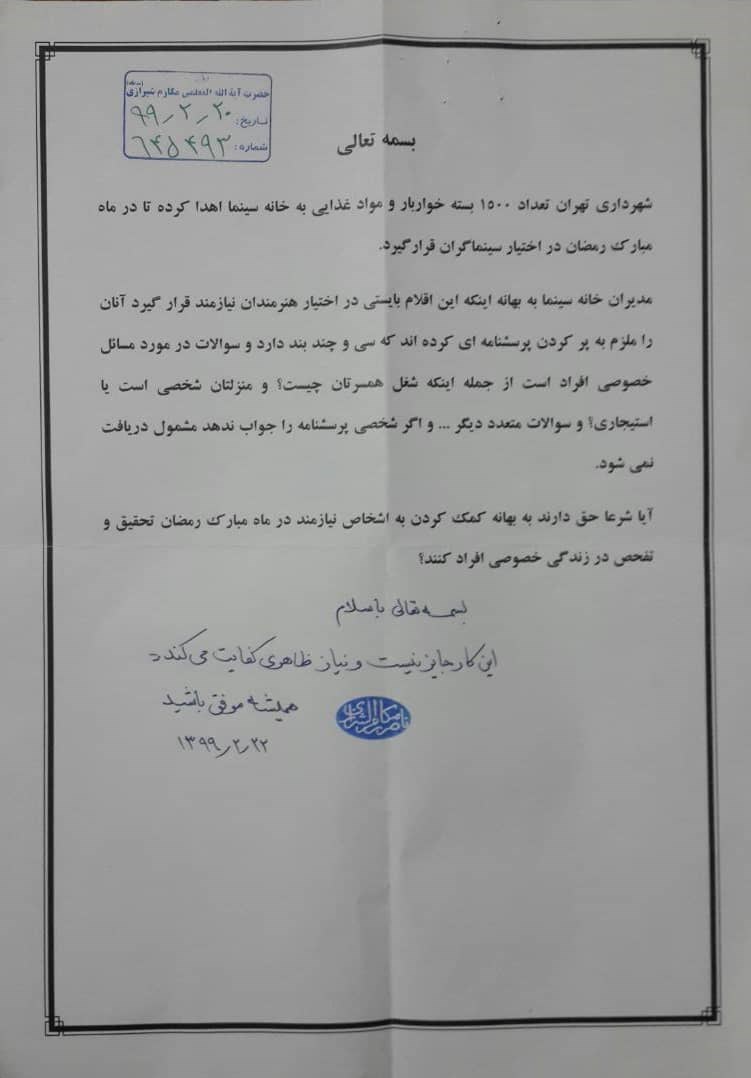 حضرت آیة الله العظمی مکارم شیرازی
تاریخ: ۹۹٫۲٫۲۰
شماره: ۶۴۵۴۹۳
بسمه تعالی
شهرداری تهران تعداد ۱۵۰۰ بسته خواربار و مواد غذایی به خانه سینما اهدا کرده تا در ماه
مبارک رمضان در اختیار سینماگران قرارگیرد.
مدیران خانه سینما به بهانه اینکه این اقلام بایستی در اختیار هنرمندان نیازمند قرار گیرد آنان
را ملزم به پر کردن پرسشنامه ای کرده اند که سی و چند بند دارد و سوالات در مورد مسائل
خصوصی افراد است از جمله اینکه شغل همسرتان چیست؟ و منزلتان شخصی است یا
استیجاری؟ و سوالات متعدد دیگر ... و اگر شخصی پرسشنامه را جواب ندهد مشمول دریافت
نمی شود.
آیا شرعا حق دارند به بهانه کمک کردن به اشخاص نیازمند در ماه مبارک رمضان تحقیق و
تفحص در زندگی خصوصی افراد کنند؟
بسمه تعالی با سلام
این کار جایز نیست و نیاز ظاهری کفایت می کند
همیشه موفق باشید
ناصر مکارم الشیرازی
۱۳۹۹٫۲٫۲۲